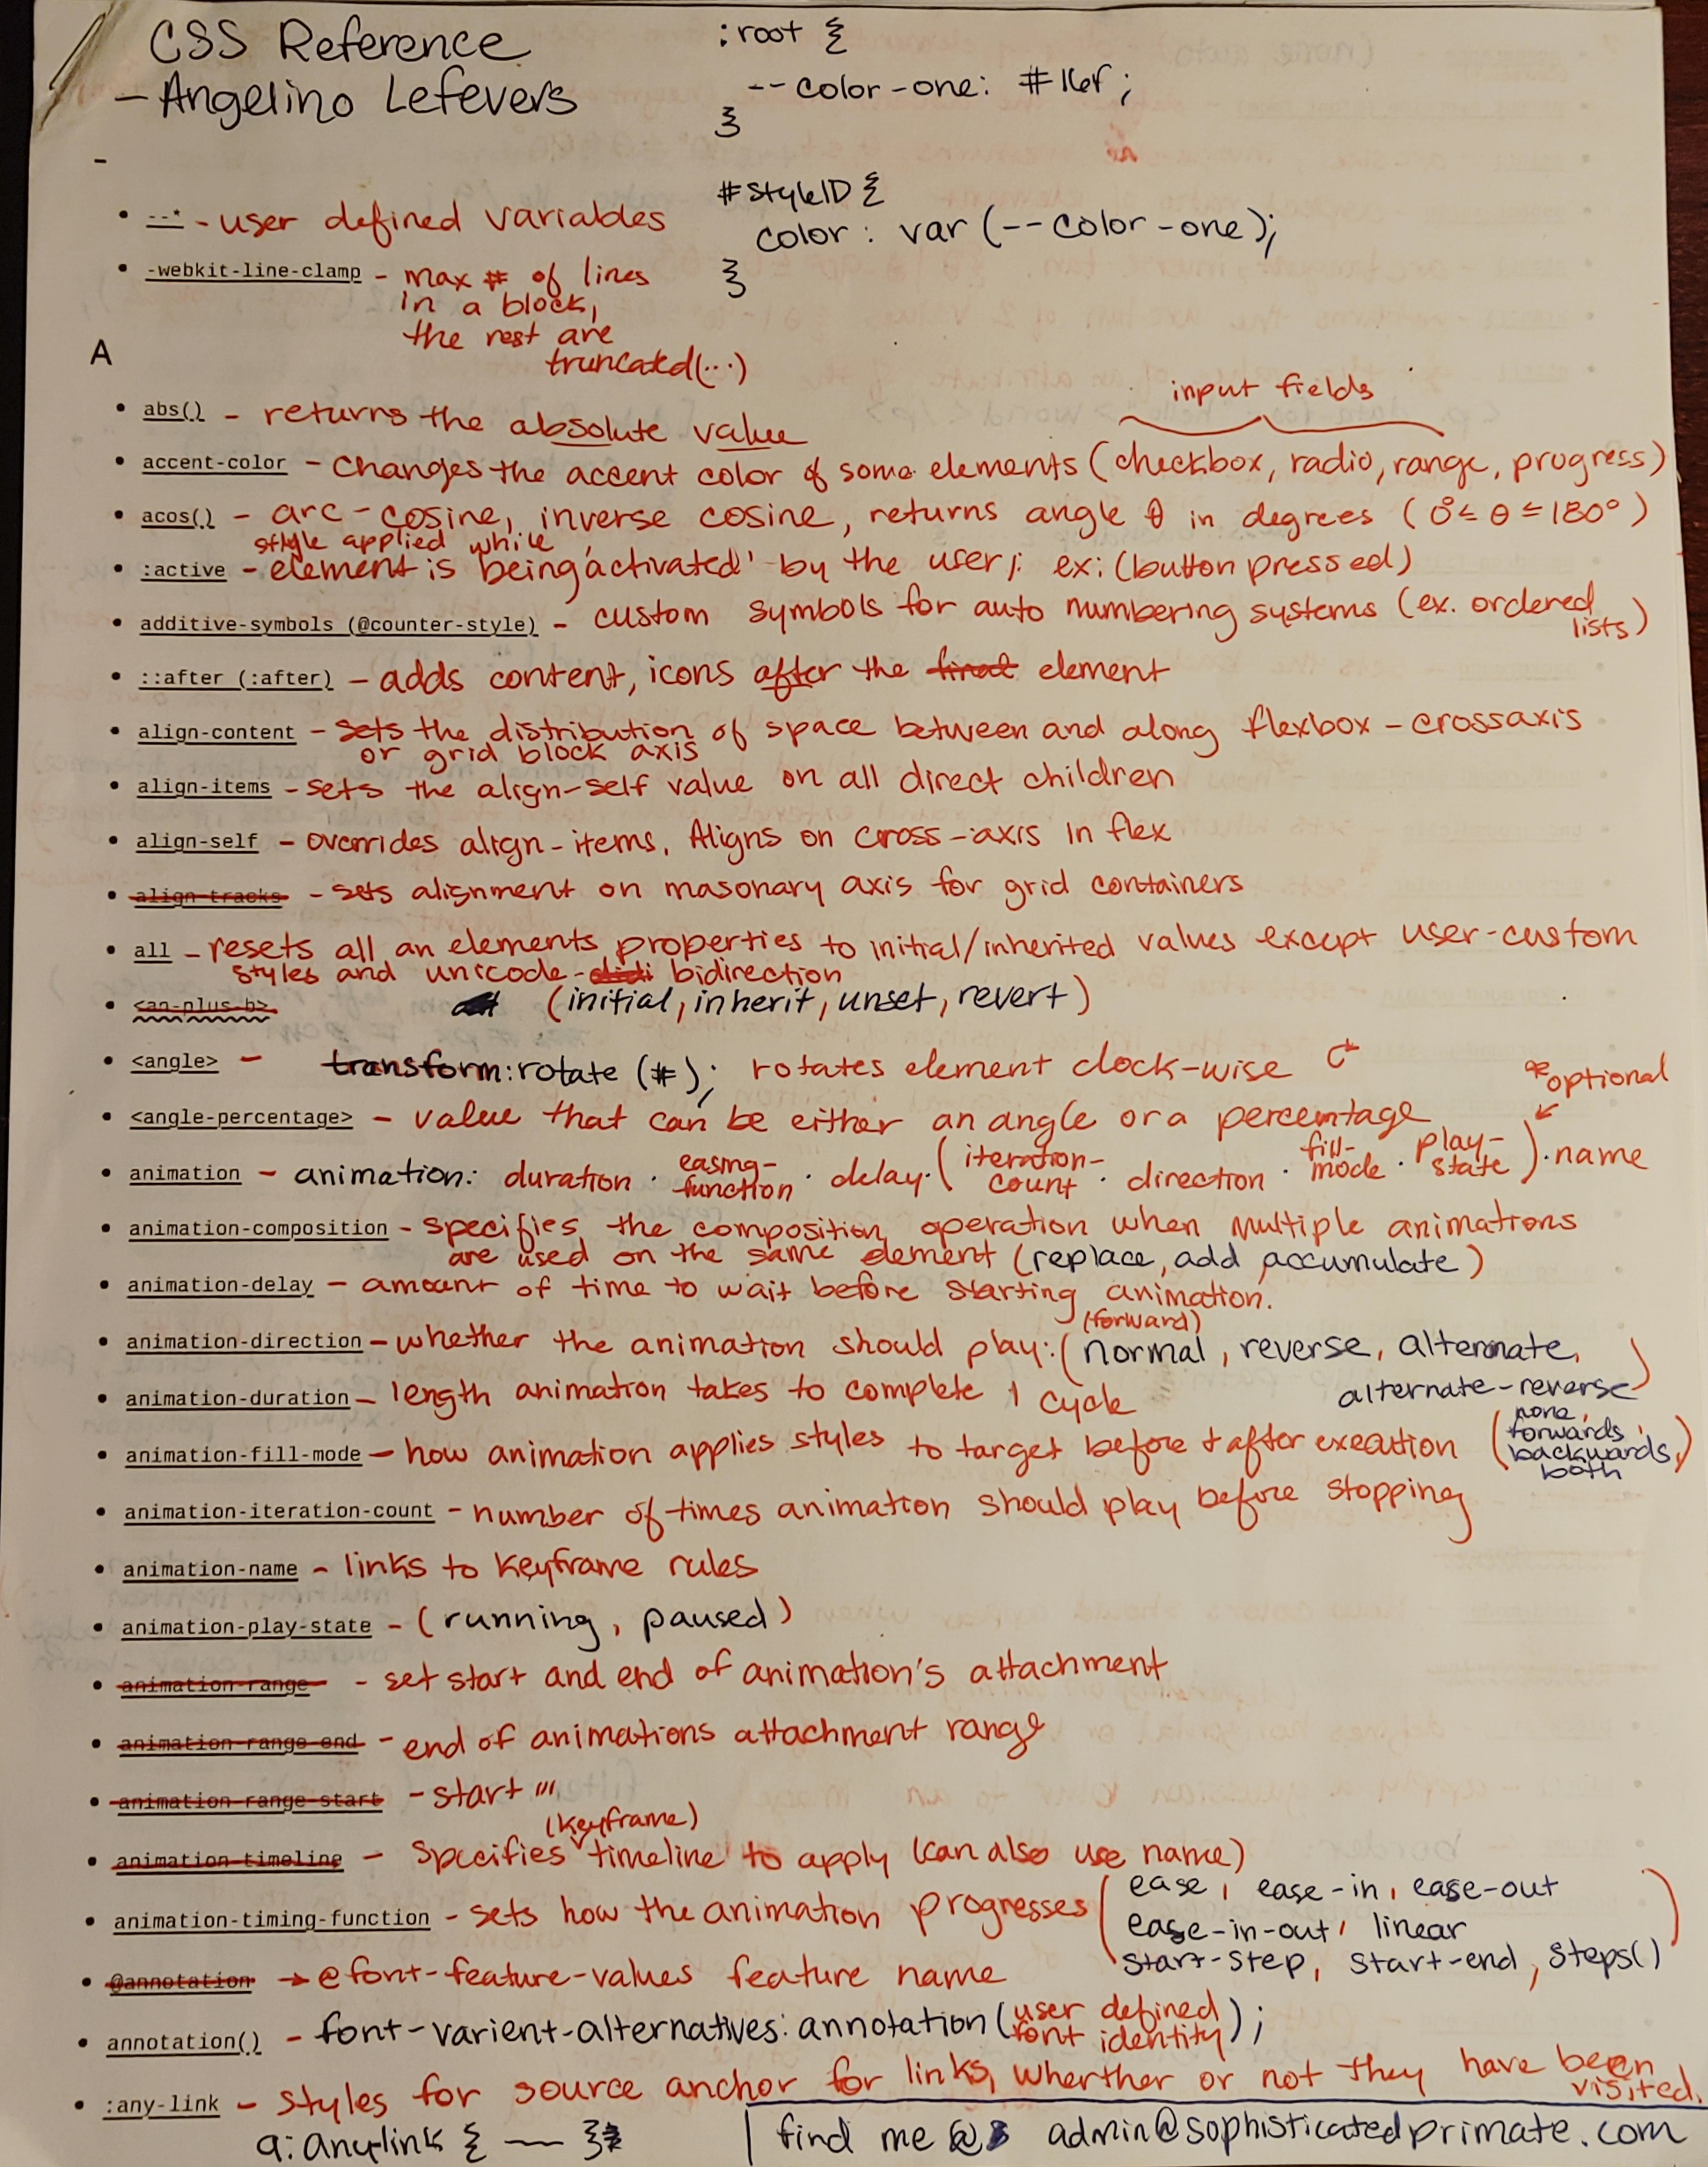 CSS Reference
- Angelino Lefevers
:root {
--color-one: #16f;
}
-
#styleID {
color: var(--color-one);
}
• --* - user defined variables
• -webkit-line-clamp - max # of lines
in a block,
the rest are
truncated(...)
A
• abs() - returns the absolute value
input fields
• accent-color - changes the accent color of some elements (checkbox, radio, range, progress)
• acos() - arc-cosine, inverse cosine, returns angle θ in degrees (0°≤ θ ≤180°)
style applied while
• :active - element is being 'activated' by the user; ex: (button pressed)
• additive-symbols (@counter-style) - custom symbols for auto numbering systems (ex. ordered
lists)
• ::after (:after) - adds content, icons after the final element
• align-content - sets the distribution of space between and along flexbox-crossaxis
or grid block axis
• align-items - sets the align-self value on all direct children
• align-self - overrides align-items. Aligns on cross-axis in flex
• align-tracks - sets alignment on masonary axis for grid containers
• all - resets all an elements properties to initial/inherited values except user-custom
styles and unicode- bidirection
• <an-plus-b> (initial, inherit, unset, revert)
• <angle> - transform:rotate (#); rotates element clock-wise
*optional
• <angle-percentage> - value that can be either an angle or a percentage
• animation - animation: duration · easing-function · delay · (iteration-count · direction · fill-mode · play-state) · name
• animation-composition - specifies the composition operation when multiple animations
are used on the same element (replace, add, accumulate)
• animation-delay - amount of time to wait before starting animation.
(forward)
• animation-direction - whether the animation should play: (normal, reverse, alternate,
alternate-reverse)
• animation-duration - length animation takes to complete 1 cycle
• animation-fill-mode - how animation applies styles to target before + after execution (none, forwards, backwards, both)
• animation-iteration-count - number of times animation should play before stopping
• animation-name - links to keyframe rules
• animation-play-state - (running, paused)
• animation-range - set start and end of animation's attachment
• animation-range-end - end of animations attachment range
• animation-range-start - start "'
(keyframe)
• animation-timeline - specifies timeline to apply (can also use name)
• animation-timing-function - sets how the animation progresses (ease, ease-in, ease-out
ease-in-out, linear
start-step, start-end, steps()
)
• @annotation → @font-feature-values feature name
• annotation() - font-varient-alternatives: annotation(user defined font identity);
• :any-link - styles for source anchor for links, wherther or not they have been
visited.
a:any-link { — }
find me @ admin@sophisticatedprimate.com